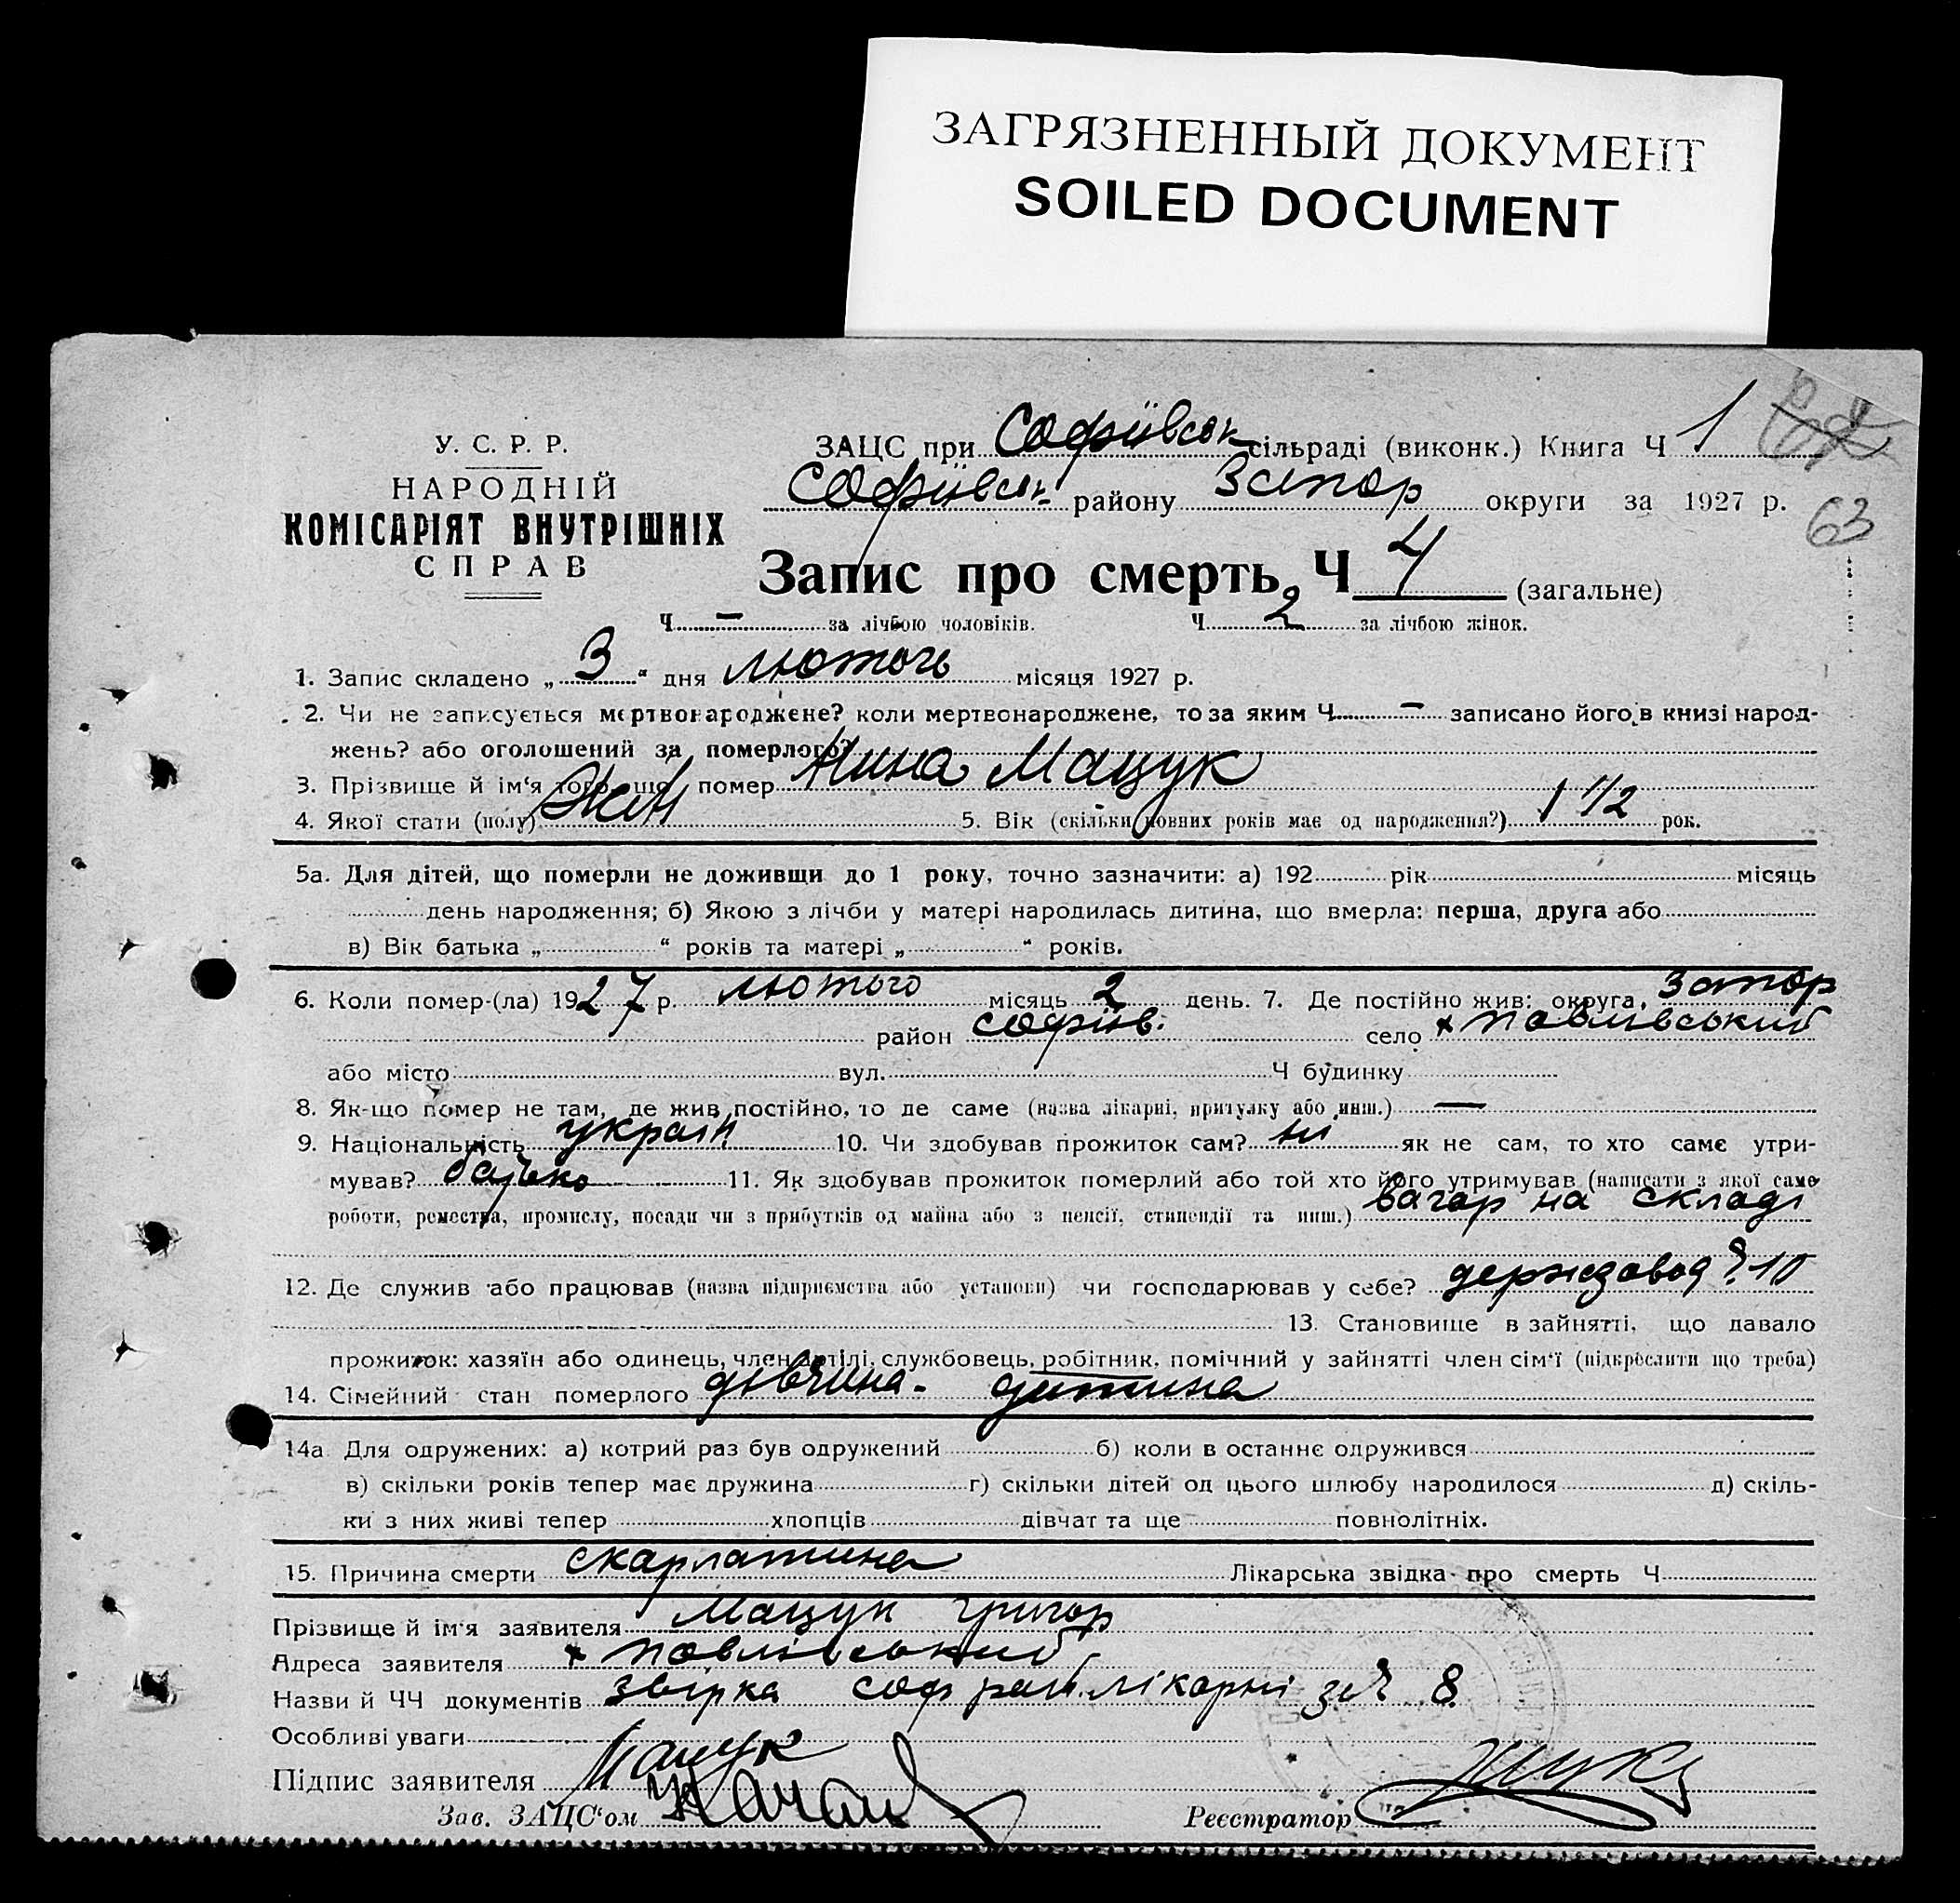 ЗАГРЯЗНЕННЫЙ ДОКУМЕНТ
SOILED DOCUMENT
У. С. Р. Р.
НАРОДНІЙ
КОМІСАРІЯТ ВНУТРІШНІХ
СПРАВ
ЗАЦС при Софіївськ сільраді (виконк.) Книга Ч 1
Софіївськ району Запор округи за 1927 р.
63
Запис про смерть Ч 4 (загальне)
Ч — за лічбою чоловіків. Ч 2 за лічбою жінок.
1. Запис складено „ 3 “ дня лютого місяця 1927 р.
2. Чи не записується мертвонароджене? коли мертвонароджене, то за яким Ч — записано його в книзі народ-
жень? або оголошений за померлого?
3. Прізвище й ім‘я того, що помер Нина Мацук
4. Якої стати (полу) Жін 5. Вік (скільки повних років має од народження?) 1 1/2 рок.
5а. Для дітей, що померли не доживши до 1 року, точно зазначити: а) 192 рік місяць
день народження; б) Якою з лічби у матері народилась дитина, що вмерла: перша, друга або
в) Вік батька „ “ років та матері „ “ років.
6. Коли помер-(ла) 1927 р. лютого місяць 2 день. 7. Де постійно жив: округа, Запор
район Софіїв. село х Павлівський
або місто вул. Ч будинку
8. Як-що помер не там, де жив постійно, то де саме (назва лікарні, притулку або инш.) —
9. Національність україн 10. Чи здобував прожиток сам? ні як не сам, то хто саме утри-
мував? батько 11. Як здобував прожиток померлий або той хто його утримував (написати з якої саме
роботи, ремества, промислу, посади чи з прибутків од майна або з пенсії, стипендії та инш.) вагар на складі
12. Де служив або працював (назва підприємства або установи) чи господарював у себе? держзавод Ч 10
13. Становище в зайнятті, що давало
прожиток: хазяїн або одинець, член артілі, службовець, робітник, помічний у зайнятті член сім‘ї (підкреслити що треба)
14. Сімейний стан померлого дівчина - дитина
14а Для одружених: а) котрий раз був одружений б) коли в останнє одружився
в) скільки років тепер має дружина г) скільки дітей од цього шлюбу народилося д) скіль-
ки з них живі тепер хлопців дівчат та ще повнолітніх.
15. Причина смерти скарлатина Лікарська звідка про смерть Ч
Прізвище й ім‘я заявителя Мацук Григор
Адреса заявителя х Павлівський
Назви й ЧЧ документів звірка соф рай.лікарні за Ч 8
Особливі уваги
Підпис заявителя Мацук
Зав. ЗАЦС‘ом Реєстратор